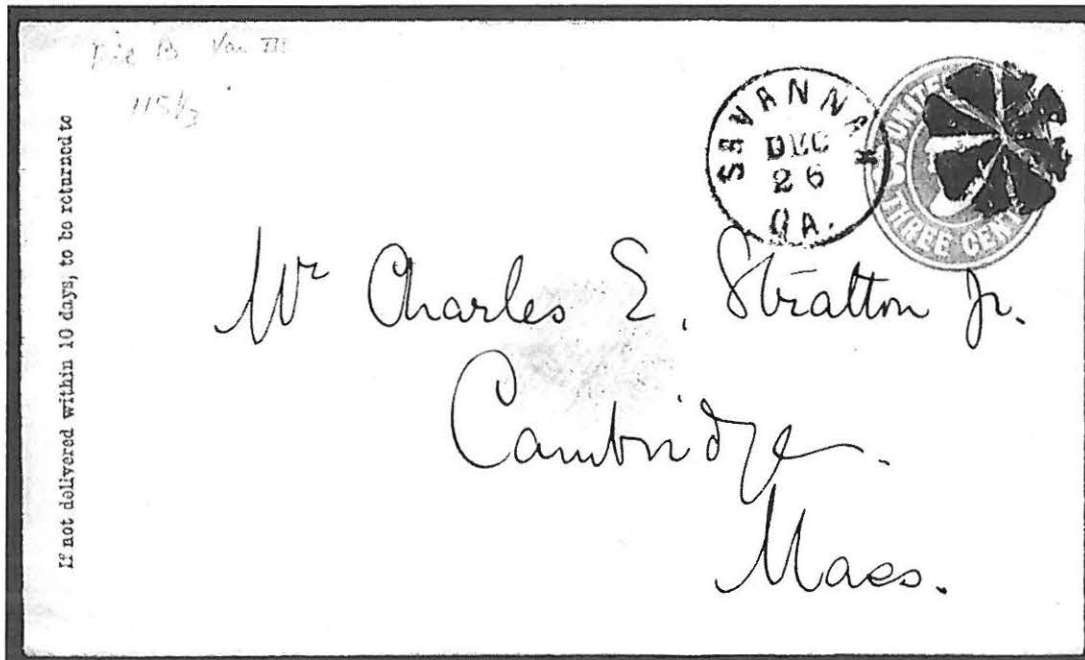 Die B Var III
115 1/3
If not delivered within 10 days, to be returned to
SAVANNAH
DEC
26
GA.
UNITE
THREE CENT
Mr Charles E. Stratton Jr.
Cambridge.
Mass.